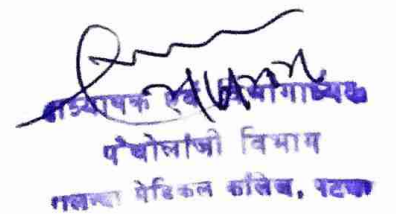 प्राध्यापक एवं विभागाध्यक्ष
पैथोलॉजी विभाग
नालन्दा मेडिकल कॉलेज, पटना